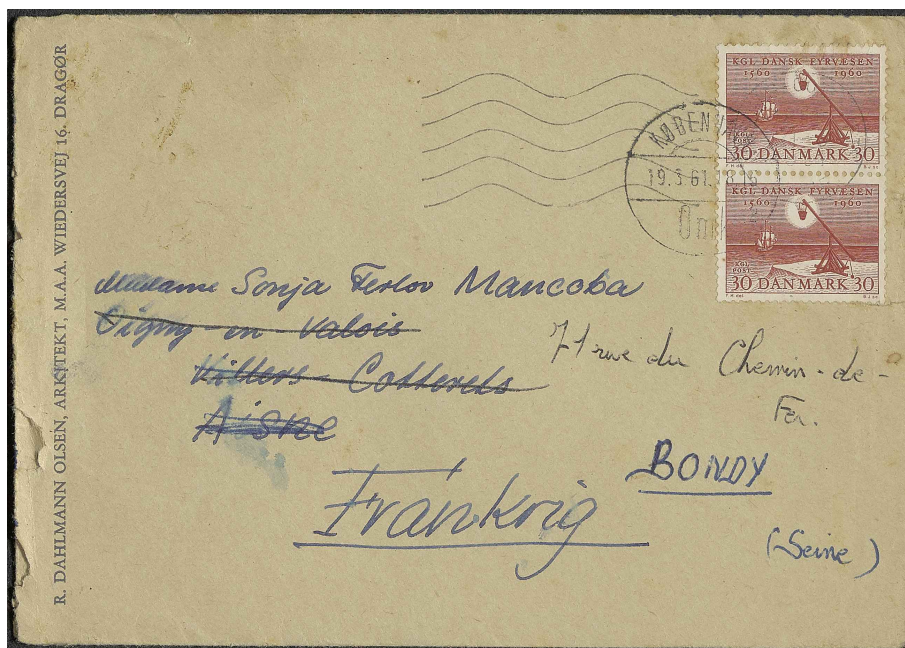 R. DAHLMANN OLSEN, ARKITEKT, M.A.A. WIEDERSVEJ 16. DRAGØR
KGL DANSK FYRVÆSEN
1560 1960
KGL POST
30 DANMARK 30
KGL DANSK FYRVÆSEN
1560 1960
KGL POST
30 DANMARK 30
KØBENHAVN
19.3.61.18
Madame Sonja Ferlov Mancoba
Oigny en Valois
Villers-Cotterets
Aisne
Frankrig
71 rue du Chemin-de-
Fer.
BONDY
(Seine)